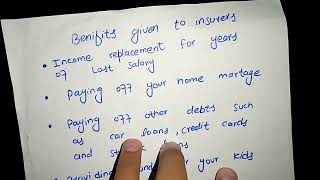 Benifits given to insurers
• Income replacement for years
of last salary
• Paying off your home mortage
• Paying off other debts such
as car loans, credit cards
and loans
your kids